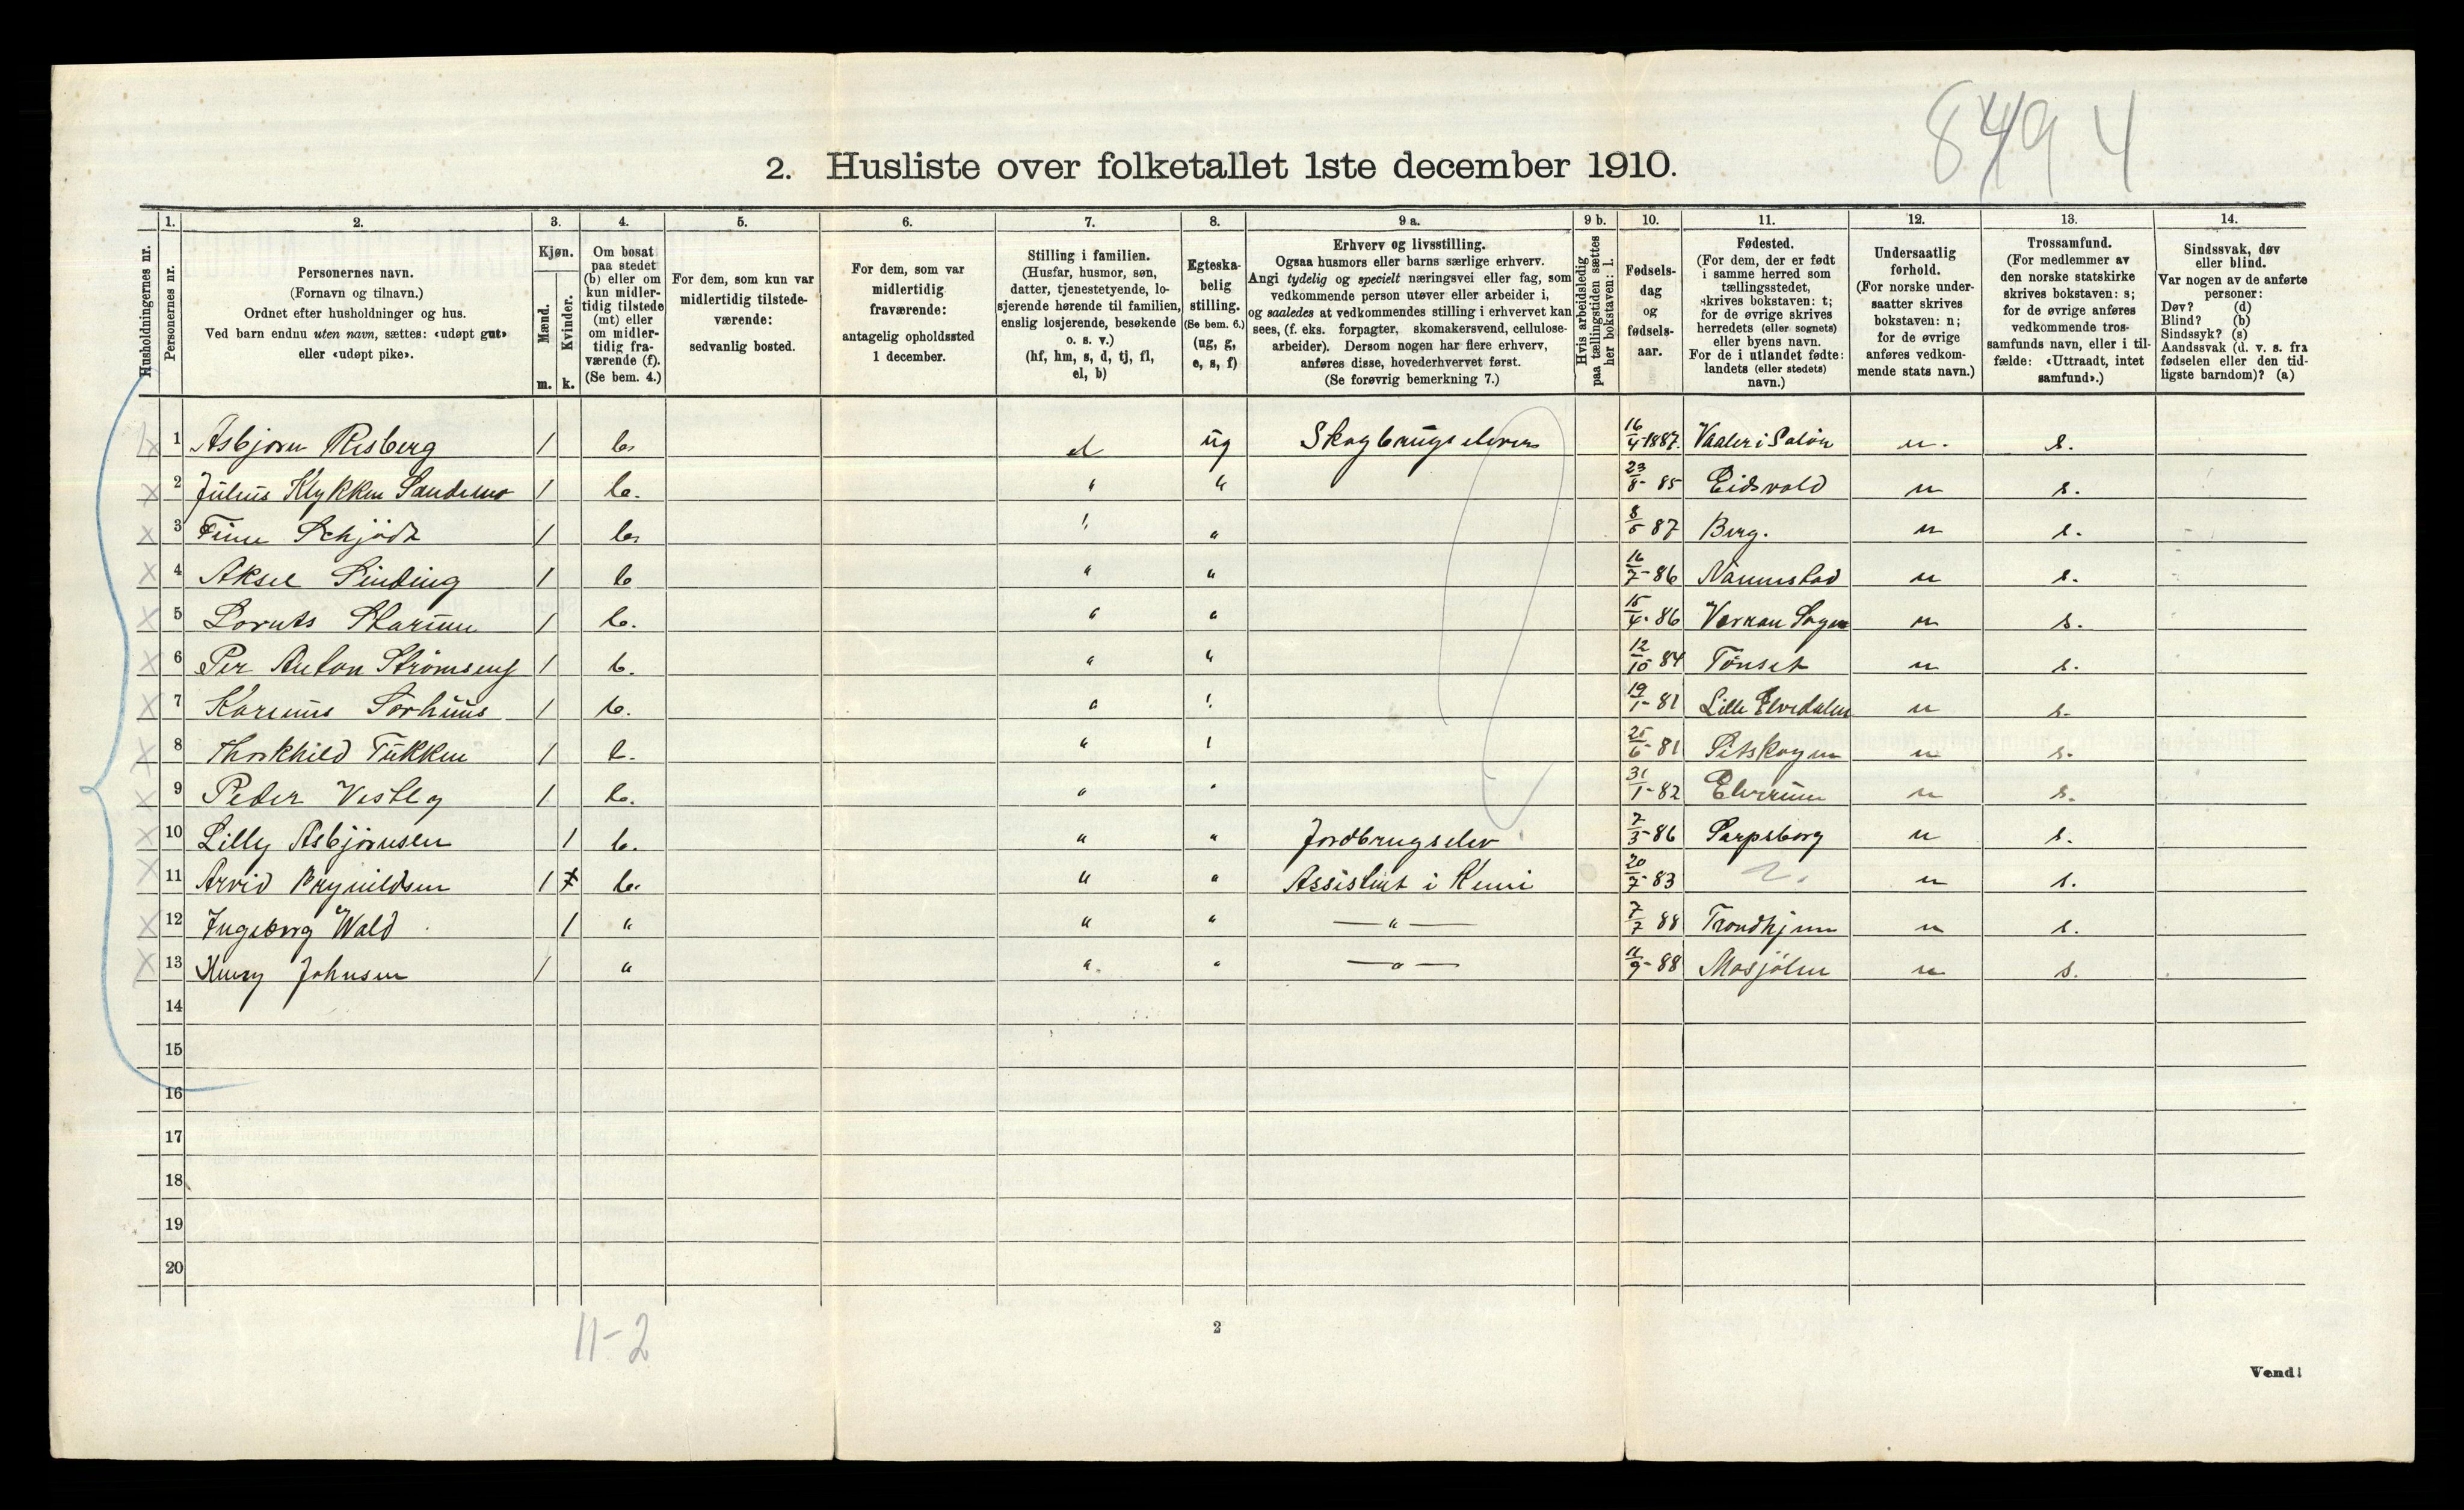 8494
2. Husliste over folketallet 1ste december 1910.
Husholdningernes nr.
1. Personernes nr.
2. Personernes navn. (Fornavn og tilnavn.) Ordnet efter husholdninger og hus. Ved barn endnu uten navn, sættes: «udøpt gut» eller «udøpt pike».
3. Kjøn. Mænd. m. Kvinder. k.
4. Om bosat paa stedet (b) eller om kun midlertidig tilstede (mt) eller om midlertidig fraværende (f). (Se bem. 4.)
5. For dem, som kun var midlertidig tilstedeværende: sedvanlig bosted.
6. For dem, som var midlertidig fraværende: antagelig opholdssted 1 december.
7. Stilling i familien. (Husfar, husmor, søn, datter, tjenestetyende, losjerende hørende til familien, enslig losjerende, besøkende o. s. v.) (hf, hm, s, d, tj, fl, el, b)
8. Egteskabelig stilling. (Se bem. 6.) (ug, g, e, s, f)
9 a. Erhverv og livsstilling. Ogsaa husmors eller barns særlige erhverv. Angi tydelig og specielt næringsvei eller fag, som vedkommende person utøver eller arbeider i, og saaledes at vedkommendes stilling i erhvervet kan sees, (f. eks. forpagter, skomakersvend, cellulosearbeider). Dersom nogen har flere erhverv, anføres disse, hovederhvervet først. (Se forøvrig bemerkning 7.)
9 b. Hvis arbeidsledig paa tællingstiden sættes her bokstaven: l.
10. Fødselsdag og fødselsaar.
11. Fødested. (For dem, der er født i samme herred som tællingsstedet, skrives bokstaven: t; for de øvrige skrives herredets (eller sognets) eller byens navn. For de i utlandet fødte: landets (eller stedets) navn.)
12. Undersaatlig forhold. (For norske undersaatter skrives bokstaven: n; for de øvrige anføres vedkommende stats navn.)
13. Trossamfund. (For medlemmer av den norske statskirke skrives bokstaven: s; for de øvrige anføres vedkommende trossamfunds navn, eller i tilfælde: «Uttraadt, intet samfund».)
14. Sindssvak, døv eller blind. Var nogen av de anførte personer: Døv? (d) Blind? (b) Sindssyk? (s) Aandssvak (d. v. s. fra fødselen eller den tidligste barndom)? (a)
x 1 Asbjørn Risberg 1 b. el ug Skogbrugselever 16/4 1887. Vaaler i Solør n. s.
x 2 Julius Klykken Sandemo 1 b. " " 23/8 - 85 Eidsvold n s.
x 3 Finn Schjødt 1 b. " " 8/5 87 Berg. n s.
x 4 Aksel Sinding 1 b " " 16/7 - 86 n s.
x 5 1 b. " " 15/4 - 86 n s.
x 6 Per Anton Strømseng 1 b. " " 12/10 84 Tønset n s.
x 7 Karenus Sørhuus 1 b. " " 19/1 - 81 Lille Elvedalen n s.
x 8 Thorkhild Tukken 1 b. " " 25/6 - 81 n s.
x 9 Peder Vestby 1 b. " " 31/1 - 82 Elverum n s.
x 10 Lilly Asbjørnsen 1 b. " " Jordbrugselev 7/3 - 86 Sarpsborg n s.
x 11 Arvid Brynildsen 1 b. " " Assistent i Kemi 20/7 - 83 n s.
x 12 Ingeborg Wald 1 " " " — " — 7/7 88 Trondhjem n s.
x 13 Henry Johnsen 1 " " " — " — 11/9 - 88 Mosjøen n s.
14
15
16
17
18
19
20
11-2
2
Vend!